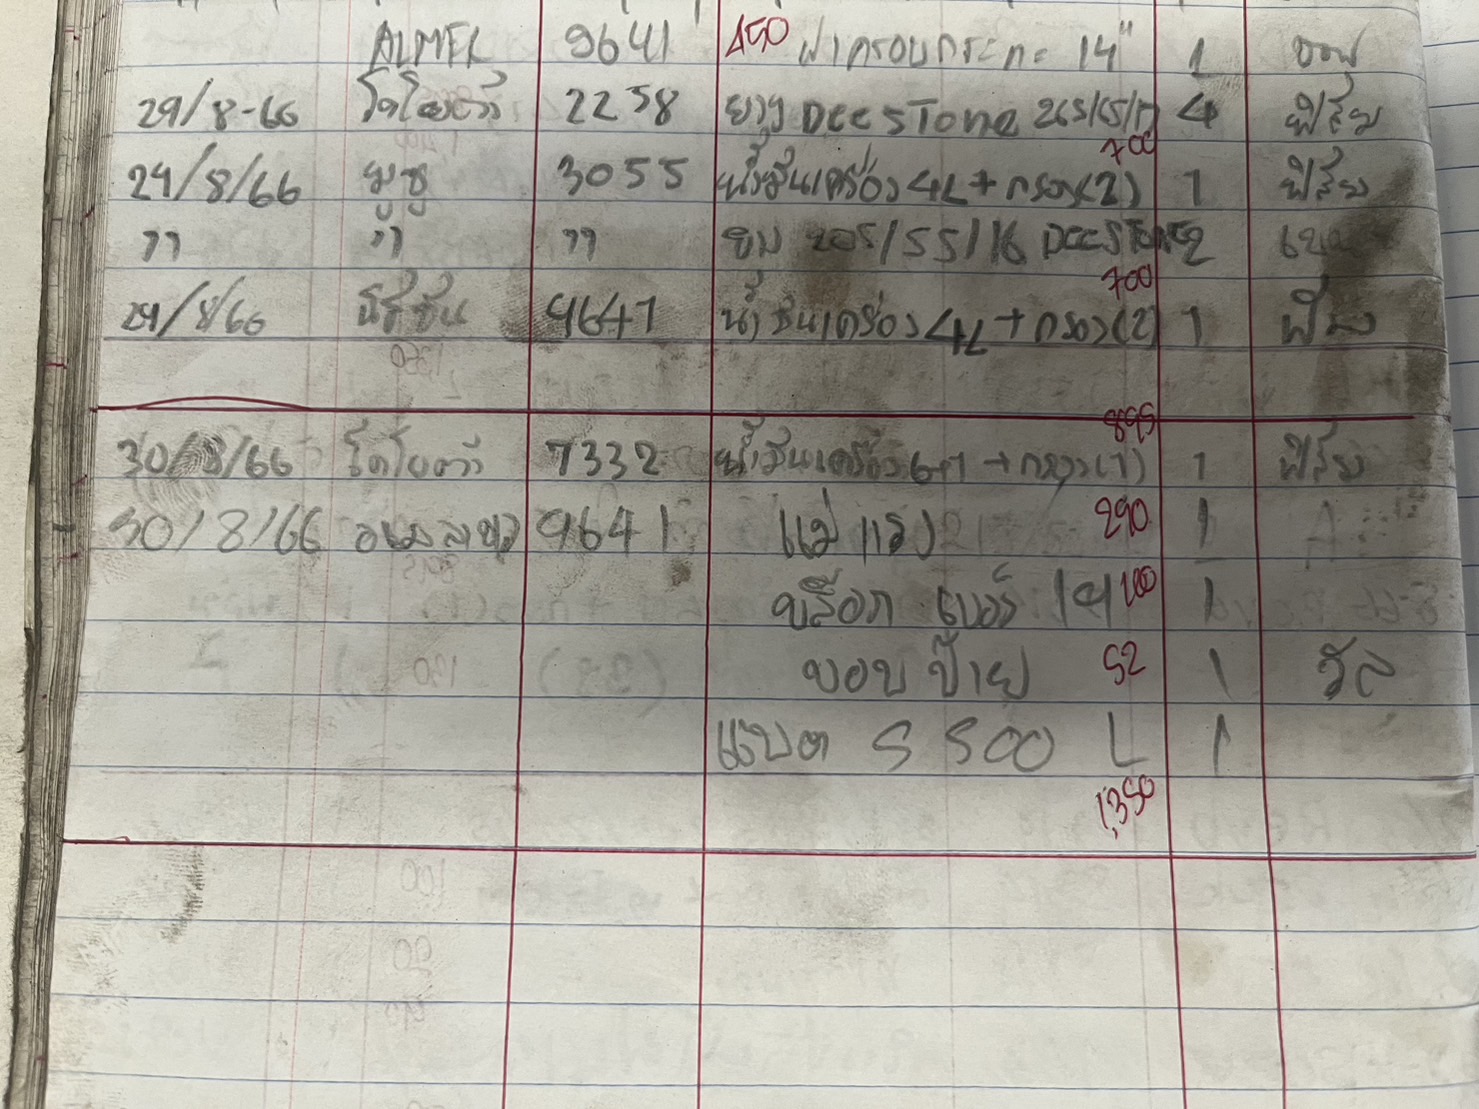 9641 450 ฝาครอบกระทะ 14" 1 ออฟ
29/8-66 โตโยต้า 2238 ยาง DEESTONE 265/65/17 4 ฟิล์ม
700
29/8/66 มูซู 3055 น้ำมันเครื่อง 4L + กรอง(2) 1 ฟิล์ม
11 11 11 ยาง 205/55/16 DEESTONE 2
700
29/8/66 นิสสัน 4647 น้ำมันเครื่อง 4L + กรอง(2) 1 ฟิล์ม
895
30/8/66 โตโยต้า 7332 น้ำมันเครื่อง 6+1 + กรอง(1) 1 ฟิล์ม
30/8/66 9641 แม่แรง 290 1
บล็อก เบอร์ 14 100 1
ขอบป้าย 52 1 วัส
แบต S 500 L 1
1,350